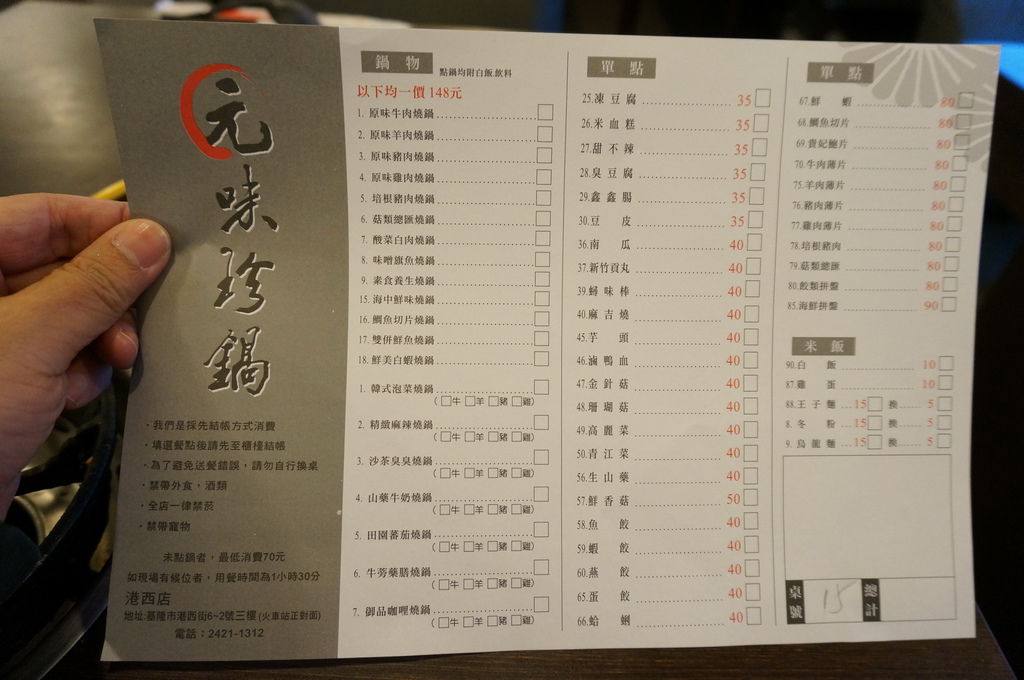 元味珍鍋
・我們是採先結帳方式消費
・填選餐點後請先至櫃檯結帳
・為了避免送餐錯誤，請勿自行換桌
・禁帶外食，酒類
・全店一律禁菸
・禁帶寵物
未點鍋者，最低消費70元
如現場有候位者，用餐時間為1小時30分
港西店
地址:基隆市港西街6-2號三樓(火車站正對面)
電話：2421-1312
鍋物 點鍋均附白飯.飲料
以下均一價 148元
1. 原味牛肉燒鍋
2. 原味羊肉燒鍋
3. 原味豬肉燒鍋
4. 原味雞肉燒鍋
5. 培根豬肉燒鍋
6. 菇類總匯燒鍋
7. 酸菜白肉燒鍋
8. 味噌旗魚燒鍋
9. 素食養生燒鍋
15. 海中鮮味燒鍋
16. 鯛魚切片燒鍋
17. 雙併鮮魚燒鍋
18. 鮮美白蝦燒鍋
1. 韓式泡菜燒鍋
(□牛 □羊 □豬 □雞)
2. 精緻麻辣燒鍋
(□牛 □羊 □豬 □雞)
3. 沙茶臭臭燒鍋
(□牛 □羊 □豬 □雞)
4. 山藥牛奶燒鍋
(□牛 □羊 □豬 □雞)
5. 田園蕃茄燒鍋
(□牛 □羊 □豬 □雞)
6. 牛蒡藥膳燒鍋
(□牛 □羊 □豬 □雞)
7. 御品咖哩燒鍋
(□牛 □羊 □豬 □雞)
單點
25.凍豆腐 35
26.米血糕 35
27.甜不辣 35
28.臭豆腐 35
29.鑫鑫腸 35
30.豆皮 35
36.南瓜 40
37.新竹貢丸 40
39.蟳味棒 40
40.麻吉燒 40
45.芋頭 40
46.滷鴨血 40
47.金針菇 40
48.珊瑚菇 40
49.高麗菜 40
50.青江菜 40
56.生山藥 40
57.鮮香菇 50
58.魚餃 40
59.蝦餃 40
60.燕餃 40
65.蛋餃 40
66.蛤蜊 40
單點
67.鮮蝦 80
68.鯛魚切片 80
69.貴妃鮑片 80
70.牛肉薄片 80
75.羊肉薄片 80
76.豬肉薄片 80
77.雞肉薄片 80
78.培根豬肉 80
79.菇類總匯 80
80.餃類拼盤 80
85.海鮮拼盤 90
米飯
90.白飯 10
87.雞蛋 10
88.王子麵 15 換 5
8.冬粉 15 換 5
9.烏龍麵 15 換 5
桌號 15 總計